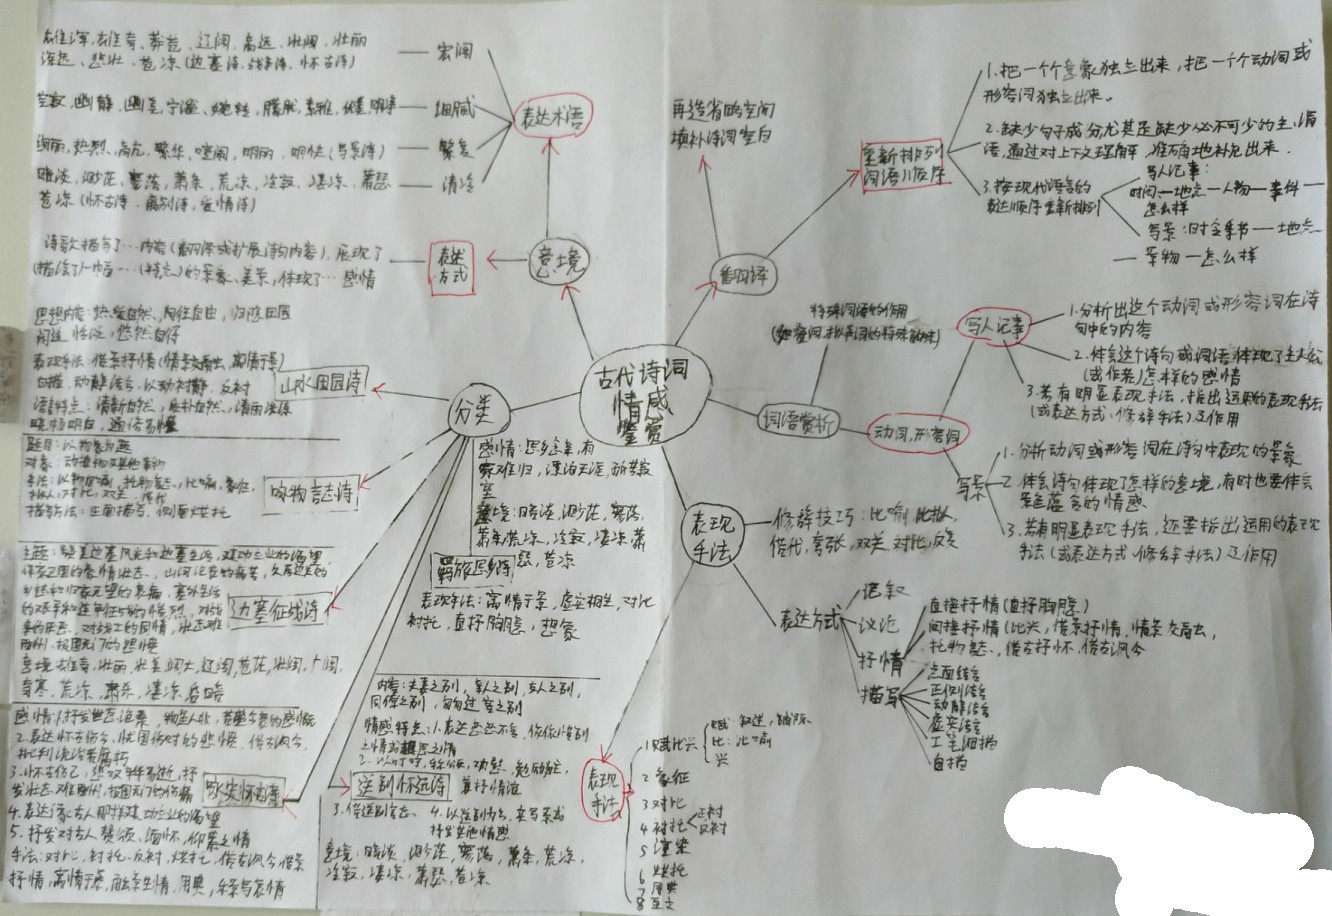 古代诗词
情感
鉴赏
意境
表达术语
宏阔
雄浑、雄奇、莽苍、辽阔、高远、壮阔、壮丽
悲壮、苍凉(边塞诗、战争诗、怀古诗)
细腻
空寂、幽静、幽美、宁谧、婉转、朦胧、素雅
繁复
绚丽、热烈、高亢、繁华、喧闹、明丽、明快(写景诗)
清冷
暗淡、渺茫、寥落、萧条、荒凉、冷寂、凄凉、萧瑟
苍凉(怀古诗、离别诗、爱情诗)
表述
方式
诗歌描写了…内容(翻译或扩展诗的内容),展现了
(描绘了)一幅…(特点)的景象、美景,体现了…感情
翻译
再造省略空间
填补诗词空白
重新排列
词语顺序
1.把一个个意象独立出来,把一个个动词或
形容词独立出来。
2.缺少句子成分尤其是缺少必不可少的主、谓
语,通过对上下文理解,准确地补充出来.
3.按现代语言的
表达顺序重新排列
写人记事:
时间—地点—人物—事件—
怎么样
写景:时令季节—地点
—景物—怎么样
词语赏析
特殊词语的作用
动词,形容词
写人记事
1.分析出这个动词或形容词在诗
句中的内容
2.体会这个诗句或词语体现了主人公
(或作者)怎样的感情
3.若有明显表现手法,指出运用的表现手法
(或表达方式、修辞手法)及作用
写景
1.分析动词或形容词在诗句中表现的景象
2.体会诗句体现了怎样的意境,有时也要体会
景色蕴含的情感
3.若有明显表现手法,还要指出运用的表现
手法(或表达方式、修辞手法)及作用
表现
手法
修辞技巧:比喻,比拟,
借代,夸张,双关,对比,反复
表达方式
记叙
议论
抒情
描写
直接抒情(直抒胸臆)
间接抒情(比兴,借景抒情,情景交融,
托物言志,借古抒怀,借古讽今
点面结合
正侧结合
动静结合
虚实结合
工笔细描
白描
表现
手法
1 赋比兴
赋:叙述,铺陈
比:比喻
兴
2 象征
3 对比
4 衬托
正衬
反衬
5 渲染
6 烘托
7 用典
8 互文
分类
山水田园诗
思想内容:热爱自然、向往自由,归隐田园
闲适恬淡,悠然自得
表现手法:借景抒情(情景交融,寓情于景)
白描,动静结合,以动衬静,反衬
语言特点:清新自然,质朴自然,清丽洗练
晓畅明白,通俗易懂
咏物言志诗
题目:以物象为题
对象:动植物及其他事物
手法:以物喻物,托物言志,比喻,象征,
拟人,对比,双关,借代
描写方法:正面描写,侧面烘托
边塞征战诗
的艰辛和连年征战的惨烈,对战
意境:雄奇,壮丽,壮美,阔大,辽阔,苍茫,壮阔,广阔,
奇寒,荒凉,萧条,凄凉
咏史怀古诗
感情:1.抒发世态沧桑,物是人非,昔盛今衰的感慨
2.表达怀古伤今,忧国伤时的悲慨,借古讽今,
批判统治者腐朽
3.怀古伤己,悲叹年华易逝,抒
发壮志难酬,报国无门的伤痛
4.表达像古人那样建功立业的渴望
5.抒发对古人赞颂、缅怀,仰慕之情
手法:对比,衬托,反衬,烘托,借古讽今,借景
抒情,寓情于景,融景生情,用典,乐景与哀情
羁旅思乡诗
感情:思乡念亲,有
家难归,漂泊天涯,孤苦寂
寞
意境:暗淡,渺茫,寥落,
萧条,荒凉,冷寂,凄凉,萧
瑟,苍凉
表现手法:寓情于景,虚实相生,对比
衬托,直抒胸臆,想象
送别怀远诗
内容:夫妻之别,亲人之别,友人之别,
同僚之别,匆匆过客之别
情感特点:1.表达恋恋不舍,依依惜别
之情或想思之情
兼抒情谊
3.借送别言志
4.以送别为名,实写景或
抒发其他情感
意境:暗淡,渺茫,寥落,萧条,荒凉,
冷寂,凄凉,萧瑟,苍凉